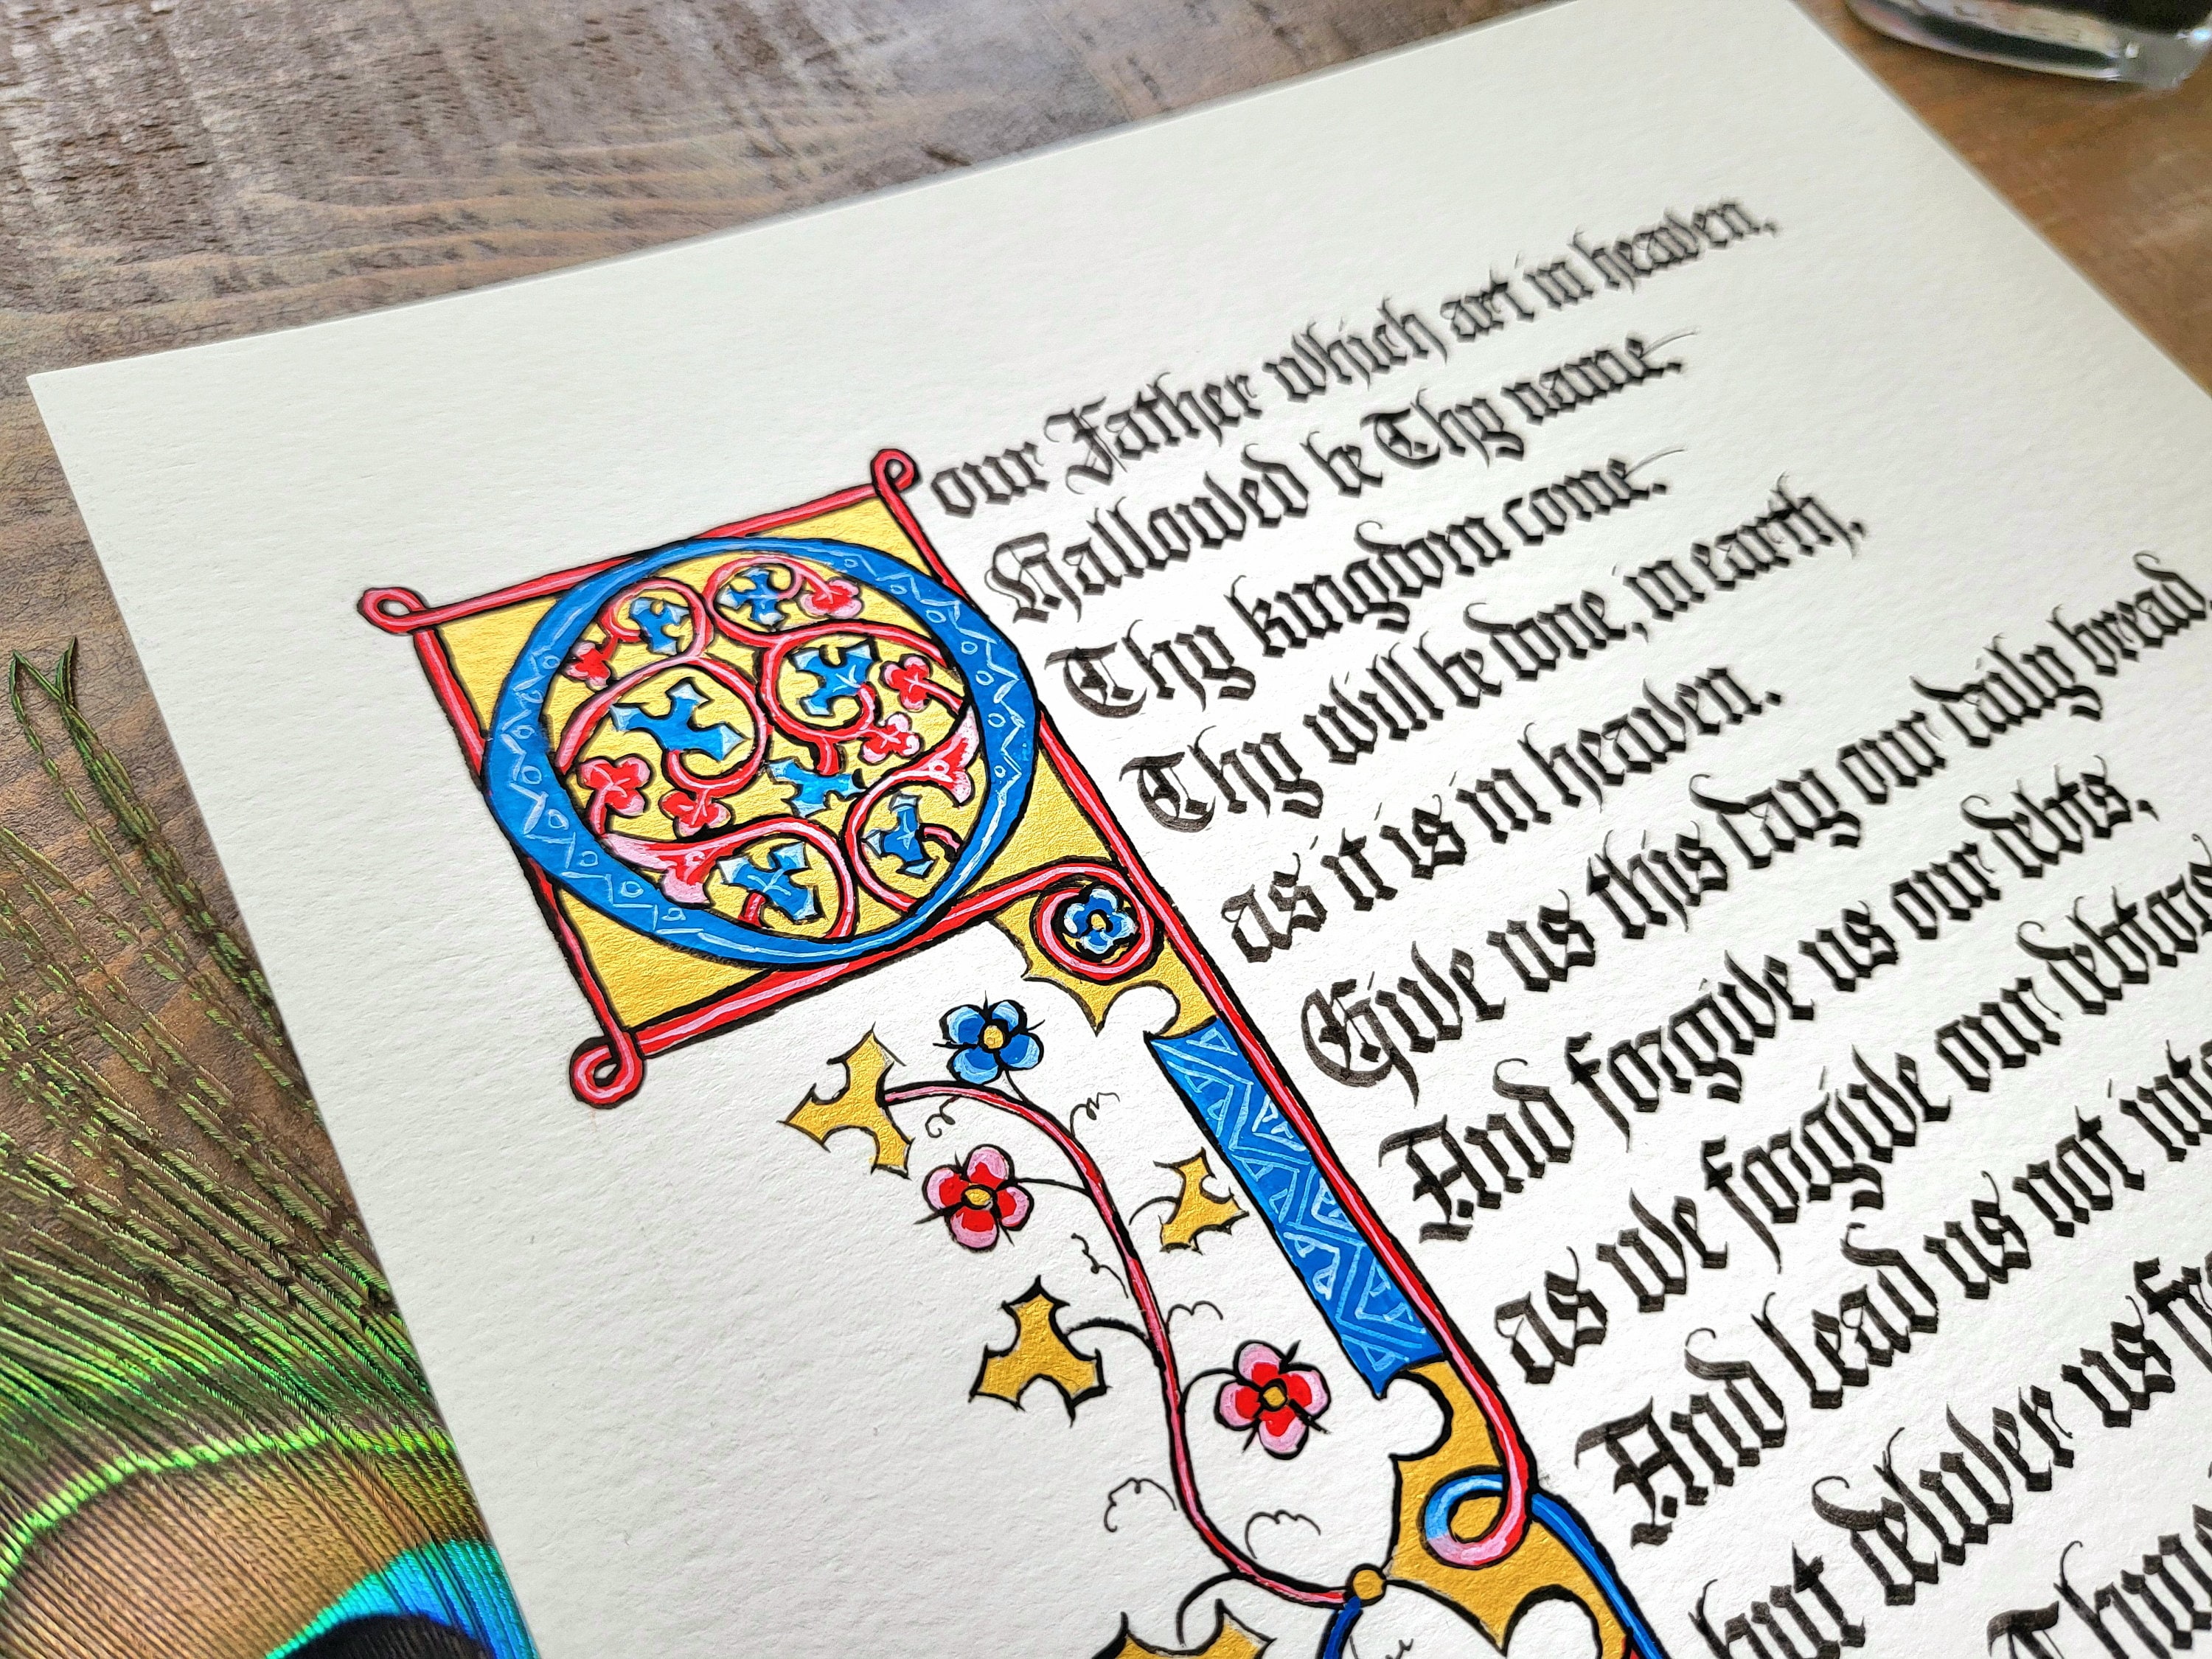 O
our Father which art in heaven,
Hallowed be Thy name.
Thy kingdom come.
Thy will be done, in earth,
as it is in heaven.
Give us this day our daily bread
And forgive us our debts,
as we forgive our debtors
And lead us not
but deliver us